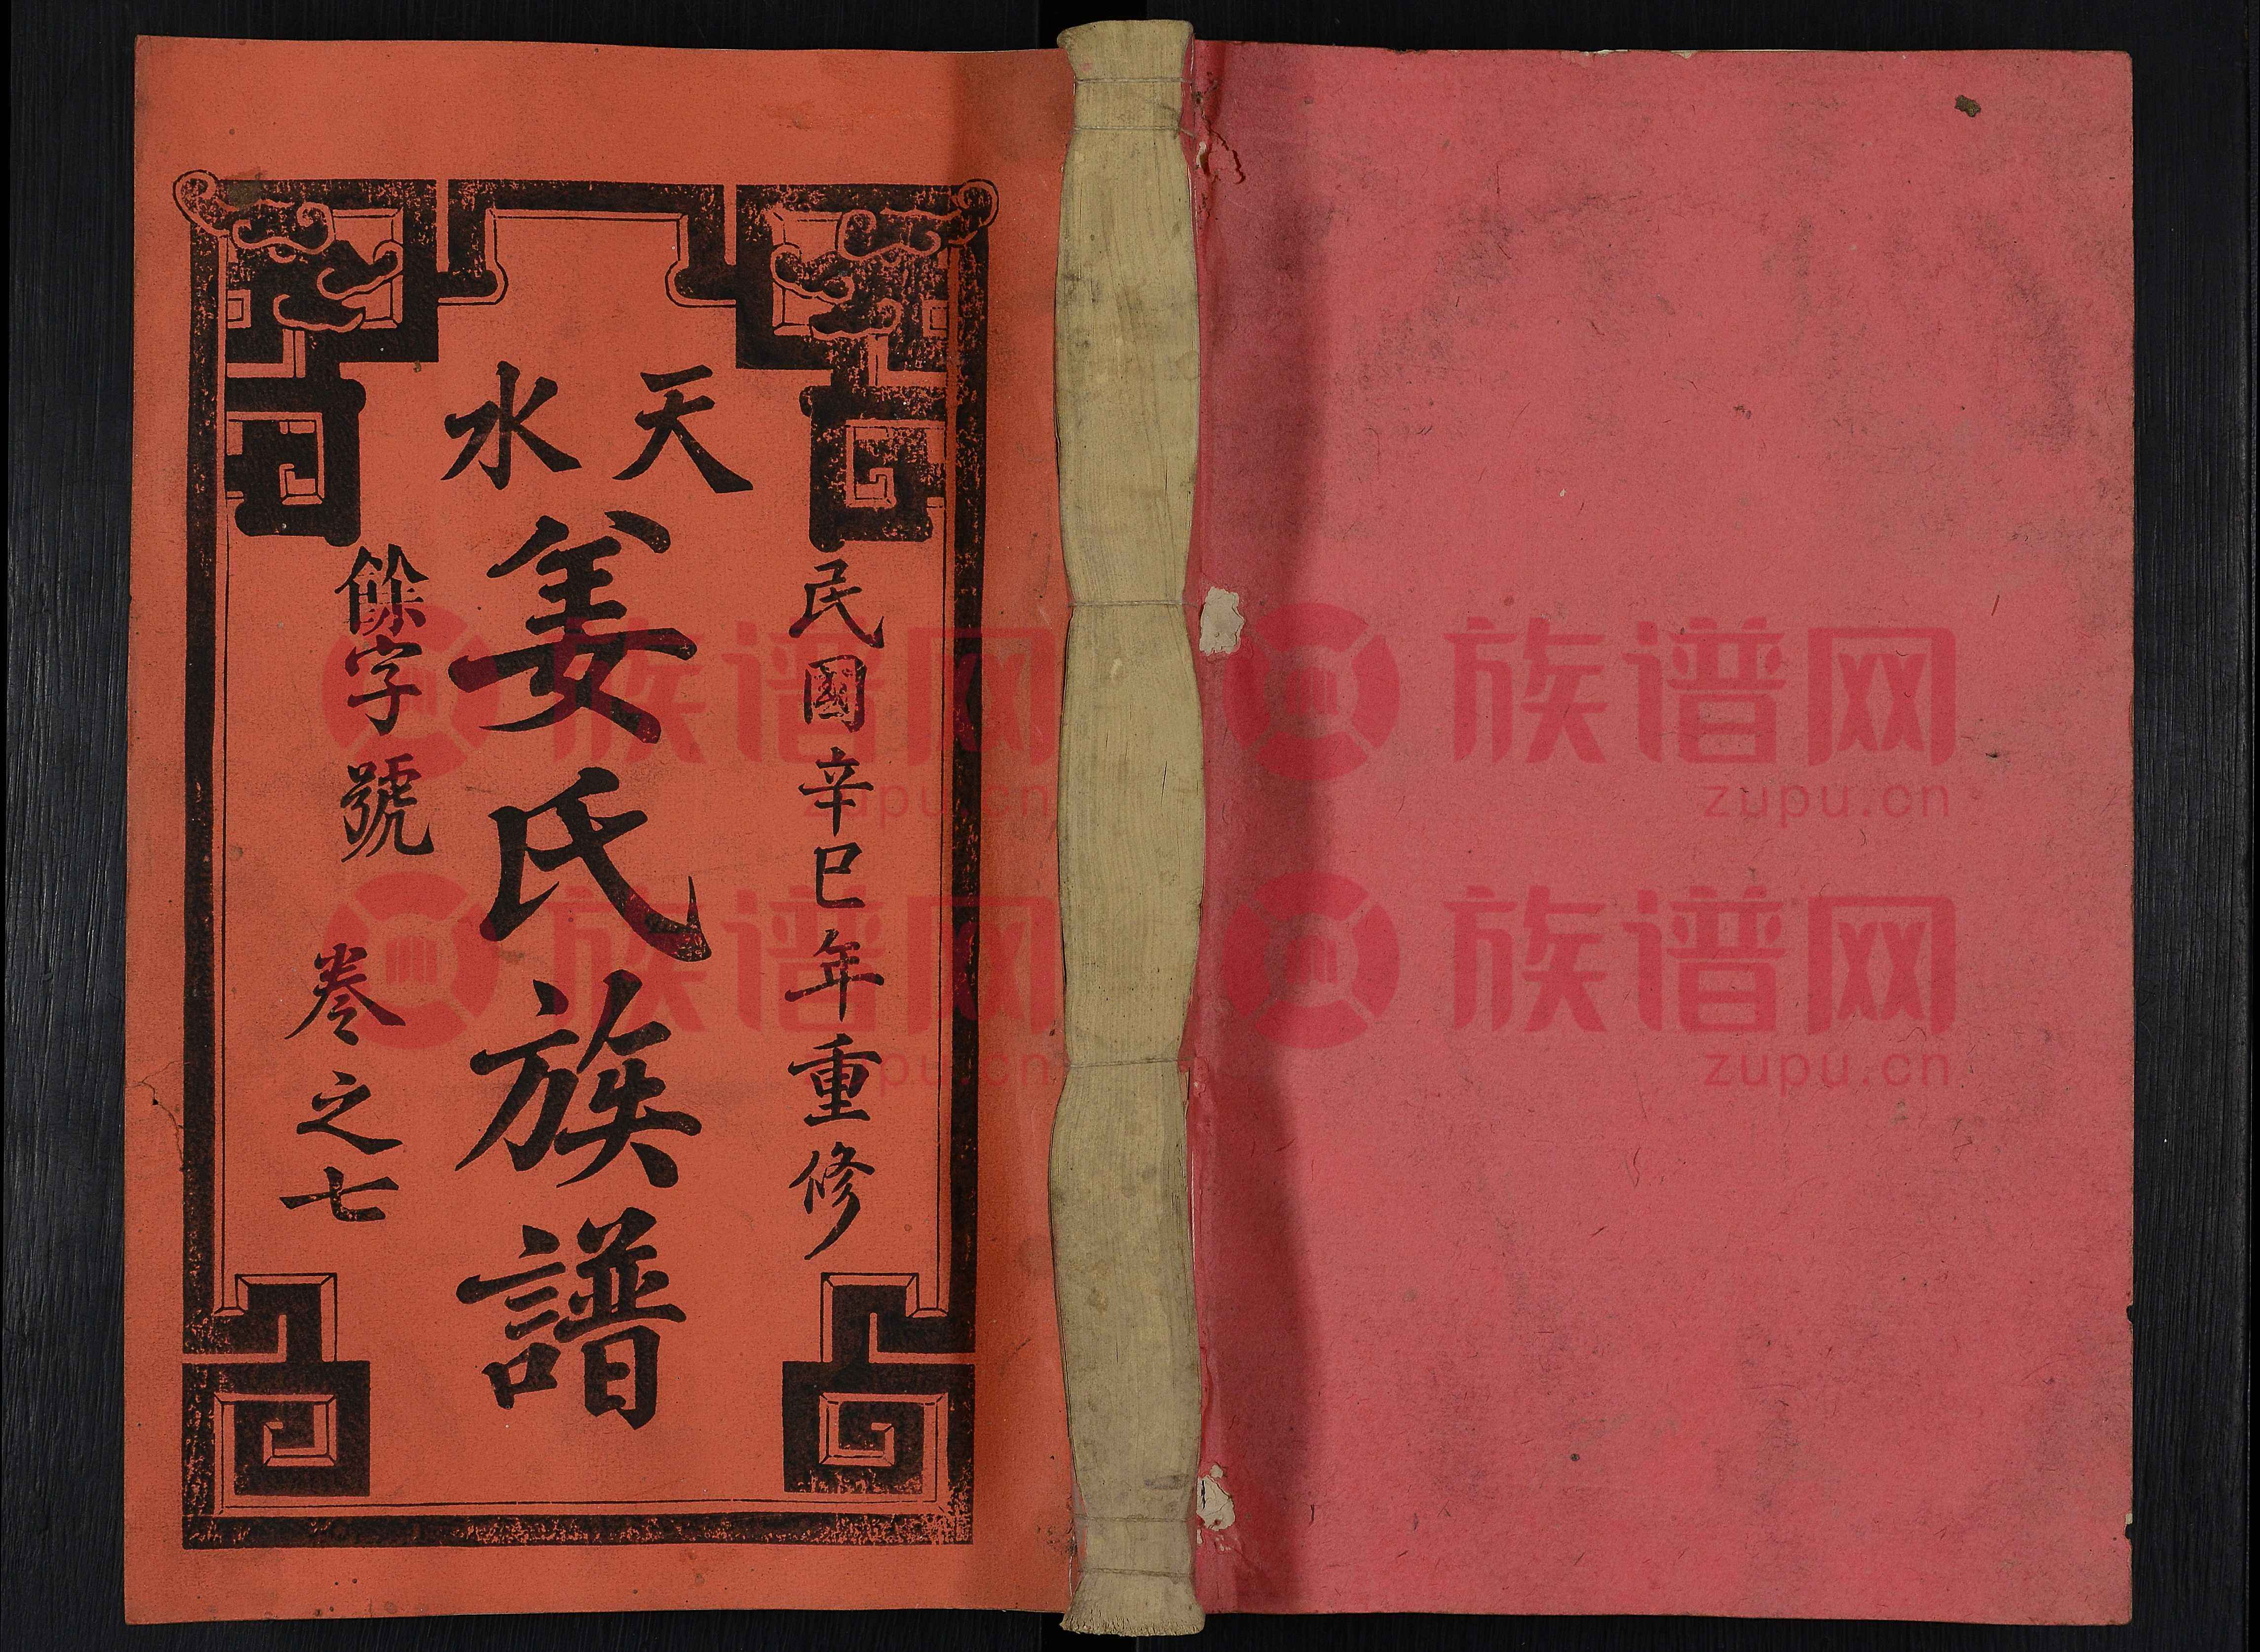 天水
民國辛巳年重修
姜氏族譜
餘字號 卷之七
族谱网
zupu.cn
族谱网
zupu.cn
族谱网
zupu.cn
族谱网
zupu.cn